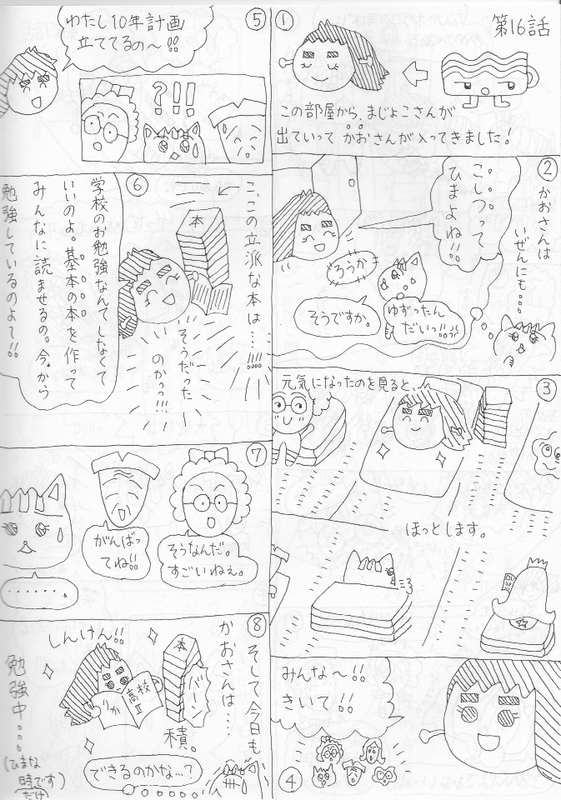 第16話
①
この部屋から、まじょこさんが
出ていって かおさんが入ってきました!
②
かおさんは
いぜんにも…
こいつって
ひまよね!!
ぞろうかぁ
ゆずったん
だいっ!!
そうですか。
③
元気になったのを見ると、
ほっとします。
④
みんな〜!!
きいて!!
⑤
わたし10年計画
立ててるの〜!!
?!!
⑥
こ、この立派な本は…!!!!
本
そうだった
のかっっ!!!
学校のお勉強なんてしなくて
いいのよ。基本の本を作って
みんなに読ませるの。今から
勉強しているのよて!!
⑦
そうなんだ。
すごいねぇ。
がんばっ
てね!!
・・・・・・.
⑧
そして今日も
かおさんは…
本
バーン
積。
しんけん!!
高校
りか
できるのかな…?
勉強中…
(ひまな
時です)
だけ